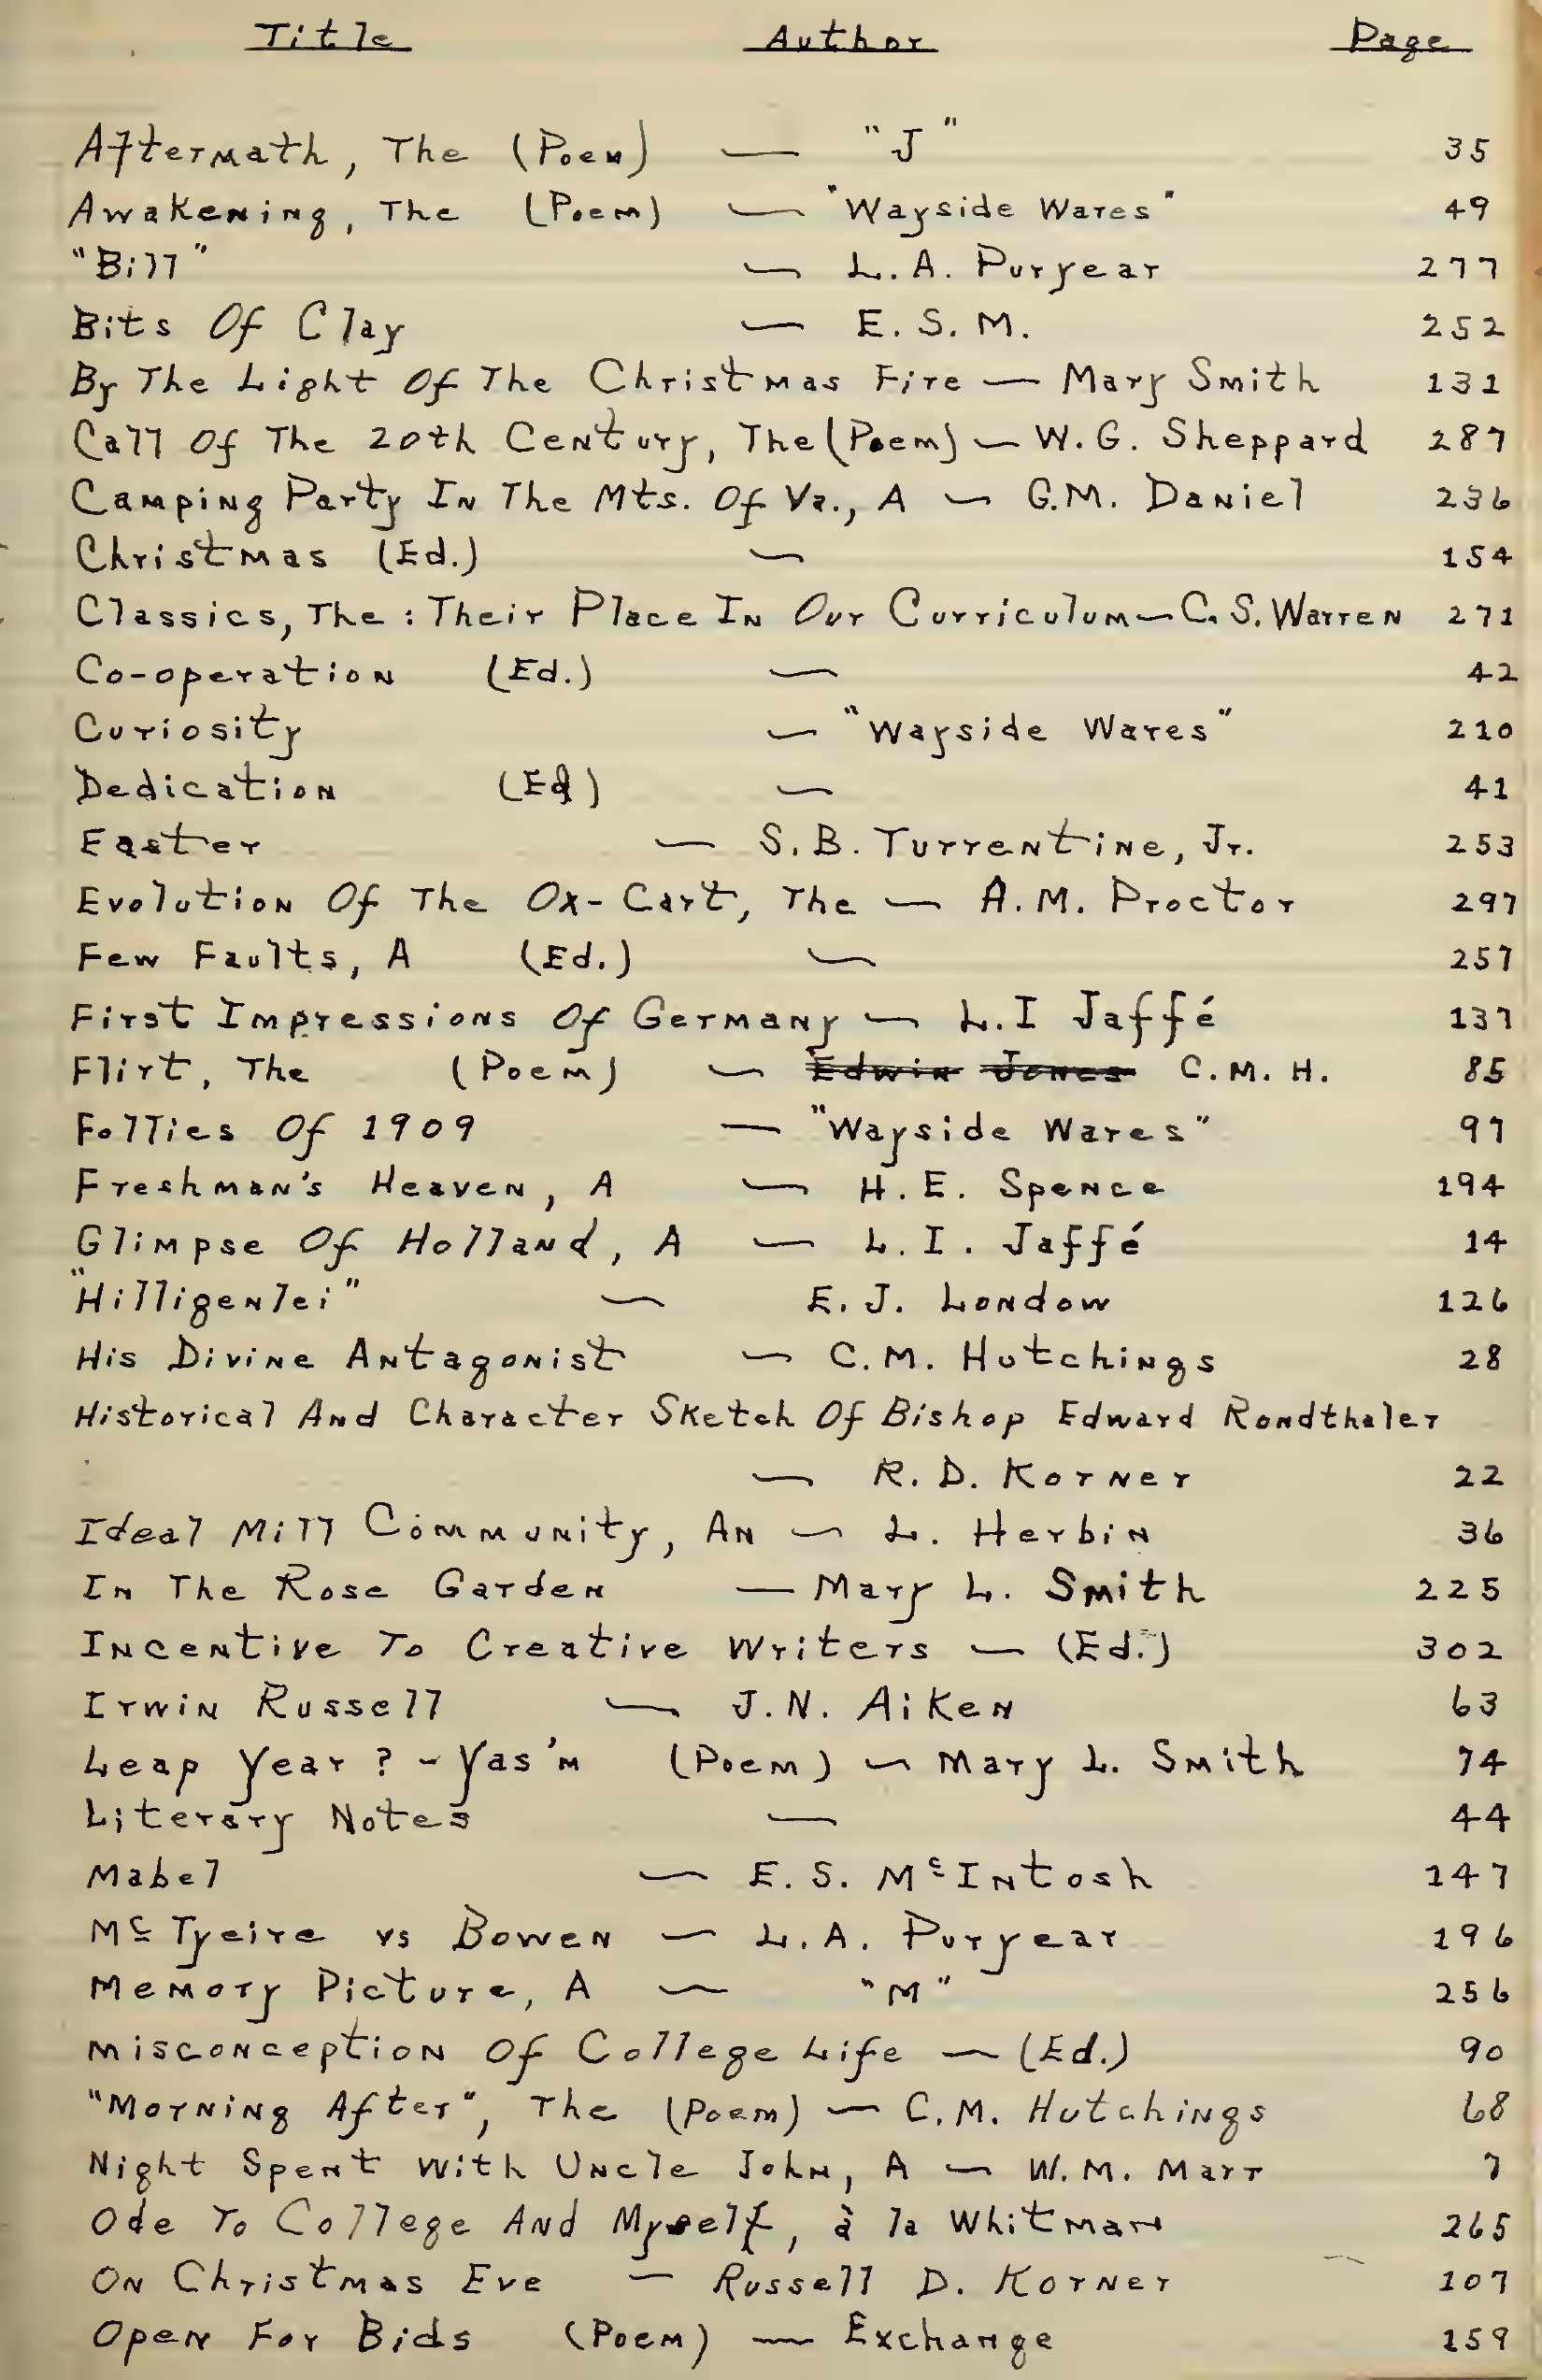 Title Author Page
Aftermath, The (Poem) — "J" 35
Awakening, The (Poem) — "Wayside Wares" 49
"Bill" — L.A. Puryear 277
Bits Of Clay — E.S.M. 252
By The Light Of The Christmas Fire — Mary Smith 131
Call Of The 20th Century, The (Poem) — W.G. Sheppard 287
Camping Party In The Mts. Of Va., A — G.M. Daniel 236
Christmas (Ed.) — 154
Classics, The : Their Place In Our Curriculum — C.S. Warren 271
Co-operation (Ed.) — 42
Curiosity — "Wayside Wares" 210
Dedication (Ed) — 41
Easter — S.B. Turrentine, Jr. 253
Evolution Of The Ox-Cart, The — A.M. Proctor 297
Few Faults, A (Ed.) — 257
First Impressions Of Germany — L.I Jaffé 137
Flirt, The (Poem) — Edwin Jones C.M.H. 85
Follies Of 1909 — "Wayside Wares" 97
Freshman's Heaven, A — H.E. Spence 194
Glimpse Of Holland, A — L.I. Jaffé 14
"Hilligenlei" — E.J. Londow 126
His Divine Antagonist — C.M. Hutchings 28
Historical And Character Sketch Of Bishop Edward Rondthaler
— R.D. Korner 22
Ideal Mill Community, An — L. Herbin 36
In The Rose Garden — Mary L. Smith 225
Incentive To Creative Writers — (Ed.) 302
Irwin Russell — J.N. Aiken 63
Leap Year ? - Yas'm (Poem) — Mary L. Smith 74
Literary Notes — 44
Mabel — E.S. McIntosh 147
McTyeire vs Bowen — L.A. Puryear 196
Memory Picture, A — "M" 256
Misconception Of College Life — (Ed.) 90
"Morning After", The (Poem) — C.M. Hutchings 68
Night Spent With Uncle John, A — W.M. Marr 7
Ode To College And Myself, à la Whitman 265
On Christmas Eve — Russell D. Korner 107
Open For Bids (Poem) — Exchange 159